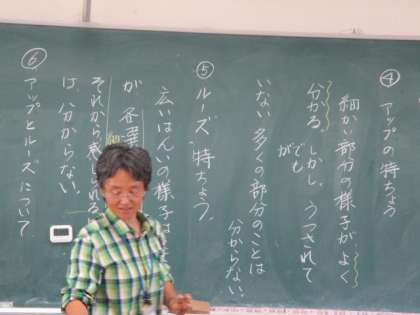 ④ アップの特ちょう
細かい部分の様子がよく
分かる。しかし、うつされて
でも
が
いない多くの部分のことは
分からない。
⑤ ルーズ〃特ちょう。
広いはんいの様子は
が、各選
それから感じられる
は、分からない。
⑥ アップとルーズについて